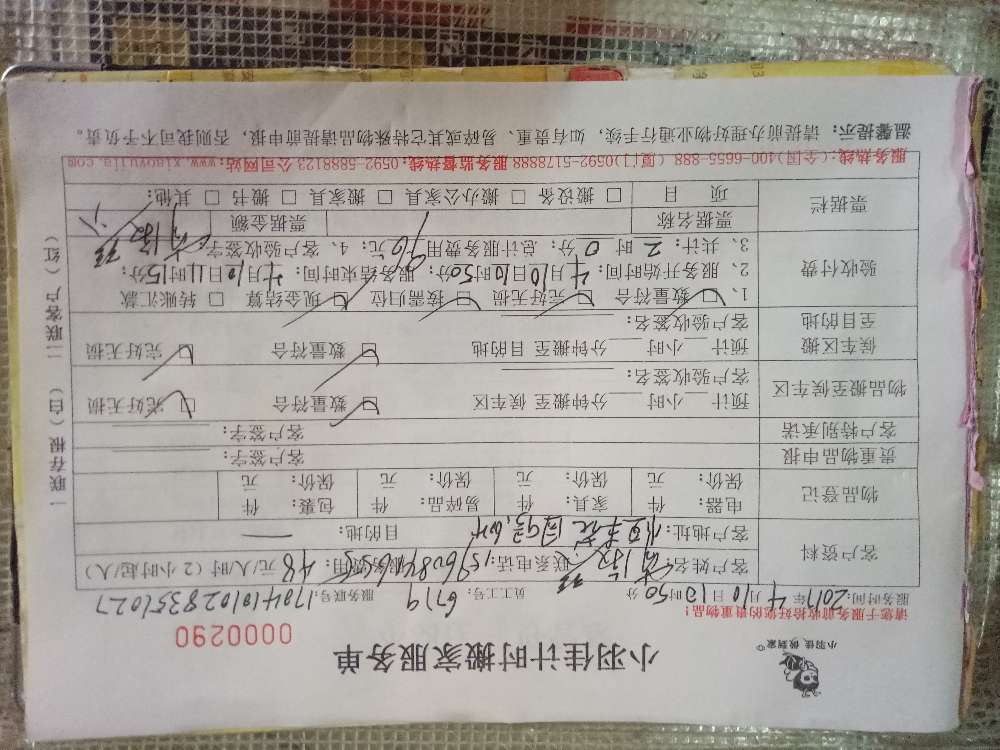 小羽佳 做到家
小羽佳计时搬家服务单
0000290
请您于服务前收拾好您的贵重物品!
服务时间: 2017年4月10日10时50分 员工工号: 6719 服务联号: 1704101028351027
客户资料 客户姓名: 联系电话: 服务费用: 48元/人/时(2小时起/人)
客户地址: 目的地:
物品登记 电器: 件 家具: 件 易碎品: 件 包裹: 件
保价: 元 保价: 元 保价: 元 保价: 元
贵重物品申报 客户签字:
客户特别承诺 客户签字:
物品搬至候车区 预计 小时 分钟搬至候车区 数量符合 完好无损
客户验收签名:
候车区搬至目的地 预计 小时 分钟搬至目的地 数量符合 完好无损
客户验收签名:
验收付费 1、 数量符合 完好无损 按需归位 现金结算 转账汇款
2、服务开始时间: 4月10日10时50分; 服务结束时间: 4月10日11时15分;
3、共计: 2时0分; 总计服务费用 96元; 4、客户验收签字
票据栏 票据名称 票据金额
项目 搬设备 搬办公家具 搬家具 搬书 其他:
服务热线:(全国)400-6655-888 (厦门)0592-5178888 服务监督热线:0592-5888123 公司网站:www.xiaoyujia.com
温馨提示: 请提前办理好物业通行手续, 如有贵重、易碎或其它特殊物品请提前申报, 否则我司不予负责。
一联存根(白) 二联客户(红)